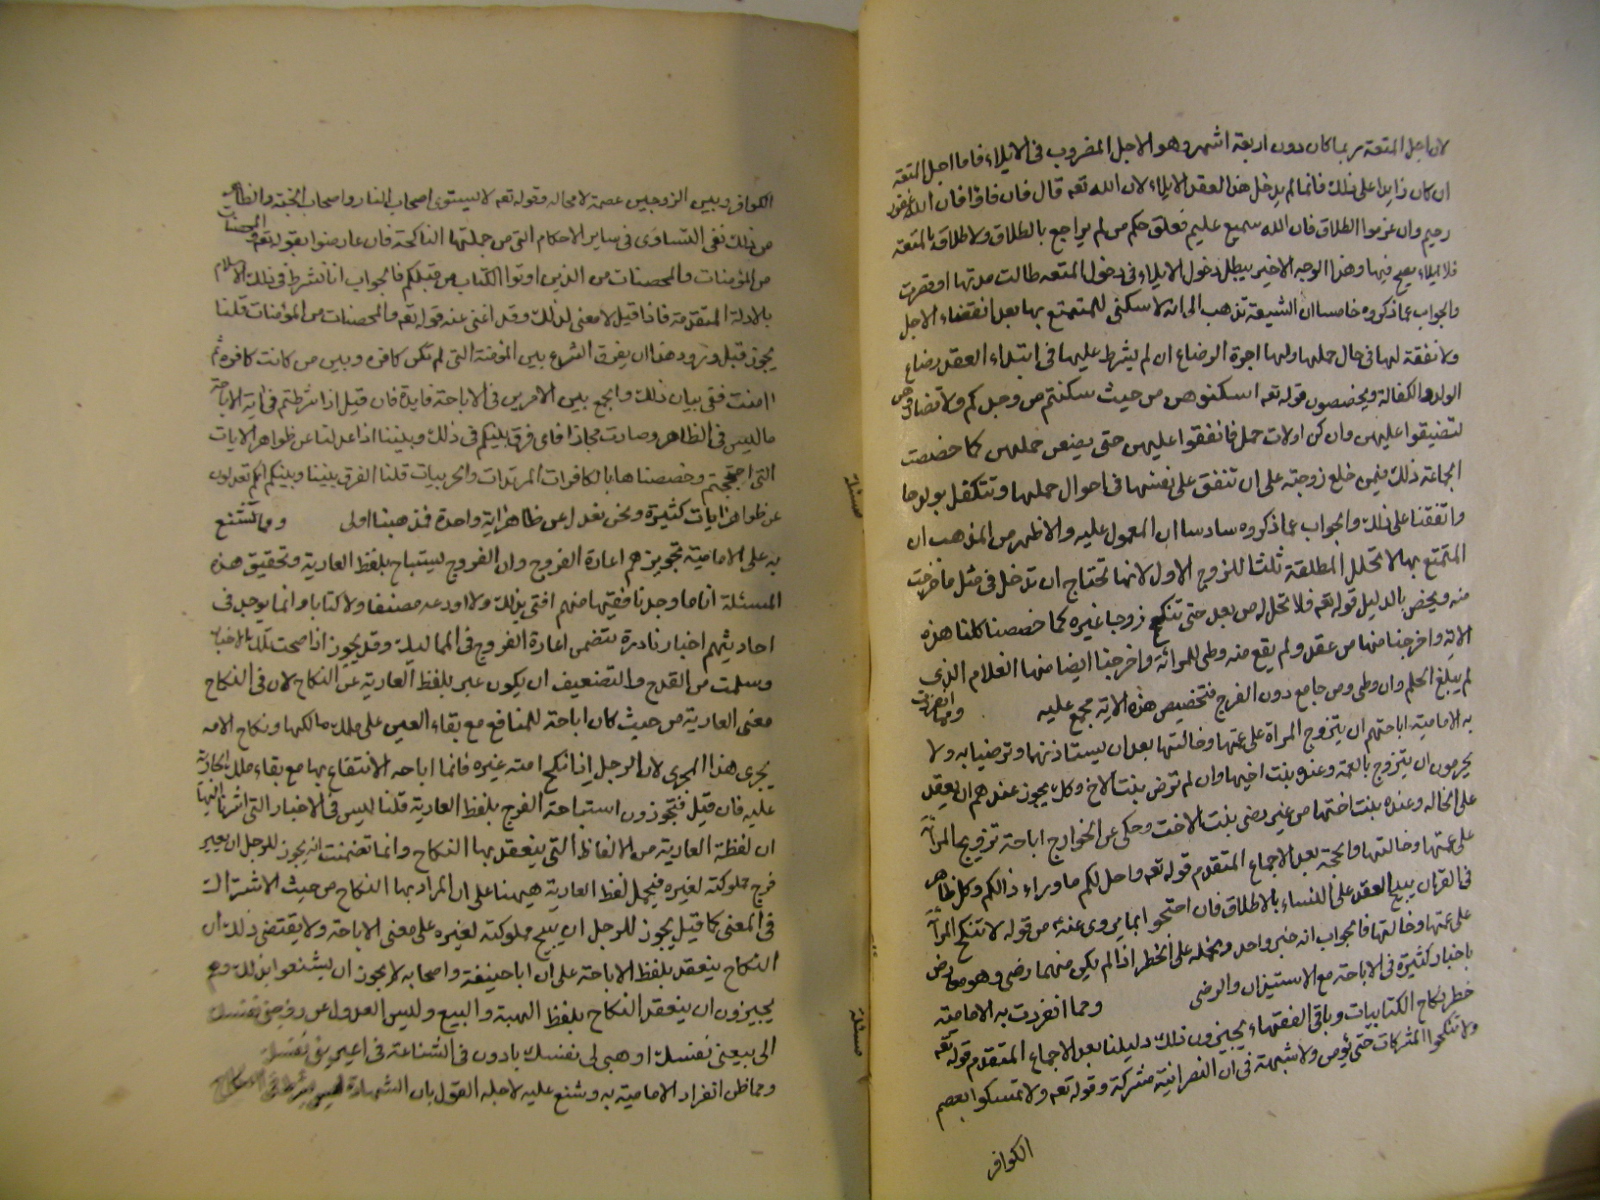 لان اجل المتعة ربما كان دون اربعة اشهر وهو الاجل المضروب فى الايلاء فاما اجل المتعة
ان كان زايدا على ذلك فانما لم يدخل هذا العقد الايلاء لان الله تعه قال فان فاؤا فان الله غفور
رحيم وان عزموا الطلاق فان الله سميع عليم فعلق حكم من لم يراجع بالطلاق ولا طلاق فى المتعة
فلا ايلاء يصح فيها وهذا الوجه الاخير يبطل دخول الايلاء فى دخول المتعه طالت مدتها او قصرت
والجواب عما ذكروه خامسا ان الشيعة تذهب الى انه لا سكنى للمتمتع بها بعد انقضاء الاجل
ولا نفقة لها فى حال حملها ولها اجرة الرضاع ان لم يشرط عليها فى ابتداء العقد رضاع
الولد والكفالة ويخصصون قوله تعه اسكنوهن من حيث سكنتم من وجدكم ولا تضاروهن
لتضيقوا عليهن وان كن اولات حمل فانفقوا عليهن حتى يضعن حملهن كما خصصت
الجماعة ذلك فيمن خلع زوجته على ان تنفق على نفسها فى احوال حملها وتتكفل بولدها
واتفقنا على ذلك والجواب عما ذكروه سادسا ان المعمول عليه والاظهر من المذهب ان
المتمتع بها لا تحلل المطلقة ثلثا للزوج الاول لانها تحتاج ان تدخل فى مثل ما خرجت
منه ويخص بالدليل قوله تعه فلا تحل له من بعد حتى تنكح زوجا غيره كما خصصنا كلنا هذه
الاية واخرجنا منها من عقد ولم يقع منه وطى للمرائة واخرجنا ايضا منها الغلام الذى
لم يبلغ الحلم وان وطى ومن جامع دون الفرج فتخصيص هذه الاية مجمع عليه ومما انفردت
به الامامية اباحتهم ان يتزوج المراة على عمتها وخالتها بعد ان يستاذنهما وترضيا به ولا
يحرمون ان يتزوج بالعمة وعنده بنت اخيها وان لم ترض بنت الاخ وكك يجوز عندهم ان يعقد
على الخاله وعنده بنت اختها من غير رضى بنت الاخت وحكى عن الخوارج اباحة تزويج المرأة
على عمتها وخالتها والحجة بعد الاجماع المتقدم قوله تعه واحل لكم ما وراء ذالكم وكل ظاهر
فى القران يبيح العقد على النساء بالاطلاق فان احتجوا بما يروى عنه من قوله لا تنكح المرأة
على عمتها وخالتها فالجواب انه خبر واحد ونحمله على الخطر اذا لم يكن منهما رضى وهو معارض
باخبار كثيرة فى الاباحة مع الاستيذان والرضى ومما انفردت به الامامية
خطر نكاح الكتابيات وباقى الفقهاء يجيزون ذلك دليلنا بعد الاجماع المتقدم قوله تعه
ولا تنكحوا المشركات حتى يؤمن ولا شبهة فى ان النصرانية مشركة وقوله تعه ولا تمسكوا بعصم
الكوافر
مسئلة
مسئلة
الكوافر وبين الزوجين عصمة لا محاله وقوله تعه لا يستوى اصحاب النار واصحاب الجنة والظاهر
من ذلك نفى التساوى فى ساير الاحكام التى من جملتها المناكحة فان عارضوا بقوله تعه والمحصنات
من المؤمنات والمحصنات من الذين اوتوا الكتاب من قبلكم فالجواب انا نشرط فى ذلك الاسلام
بالادلة المتقدمة فاذا قيل لا معنى لذلك وقد اغنى عنه قوله تعه والمحصنات من المؤمنات قلنا
يجوز قبل ورود هذا ان يفرق الشرع بين المؤمنة التى لم تكن كافرة وبين من كانت كافرة ثم
امنت ففى بيان ذلك والجمع بين الامرين فى الاباحة فايدة فان قيل اذا شرطتم فى اية الاباحة
ما ليس فى الظاهر وصارت مجازا فاى فرق بينكم فى ذلك وبيننا اذا عدلنا عن ظواهر الايات
التى احتججتم وخصصناها بالكافرات المرتدات والحربيات قلنا الفرق بيننا وبينكم انكم تعدلون
عن ظواهر ايات كثيرة ونحن نعدل عن ظاهر اية واحدة فمذهبنا اولى ومما تشنع
به على الامامية تجويزهم اعارة الفروج وان الفروج يستباح بلفظ العارية وتحقيق هذه
المسئلة انا ما وجدنا فقيها منهم افتى بذلك ولا اودعه مصنفا ولا كتابا وانما يوجد فى
احاديثهم اخبار نادرة تتضمن اعارة الفروج فى المماليك وقد يجوز اذا صحت تلك الاخبار
وسلمت من القدح والتضعيف ان يكون عبر بلفظ العارية عن النكاح لان فى النكاح
معنى العارية من حيث كان اباحة للمنافع مع بقاء العين على ملك مالكها ونكاح الامه
يجرى هذا المجرى لان الرجل اذا نكح امته غيره فانما اباحه الانتفاع بها مع بقاء ملك الجارية
عليه فان قيل فتجوزون استباحة الفرج بلفظ العارية قلنا ليس فى الاخبار التى اشرنا اليها
ان لفظة العارية من الالفاظ التى ينعقد بها النكاح وانما تضمنت انه يجوز للرجل ان يعير
فرج مملوكته لغيره فيحمل لفظ العارية هيهنا على ان المراد بها النكاح من حيث الاشتراك
فى المعنى كما قيل يجوز للرجل ان يبيح مملوكته لغيره على معنى الاباحة ولا يقتضى ذلك ان
النكاح ينعقد بلفظ الاباحة على ان ابا حنيفة واصحابه لا يجوز ان يشنعوا بذلك وهم
يجيزون ان ينعقد النكاح بلفظ الهبة والبيع وليس العدول عن زوجنى نفسك
الى بيعنى نفسك او هبى لى نفسك بادون فى الشناعة فى اعيرينى نفسك
ومما ظن انفراد الامامية به وشنع عليه لاجله القول بان الشهادة ليس بشرط فى النكاح